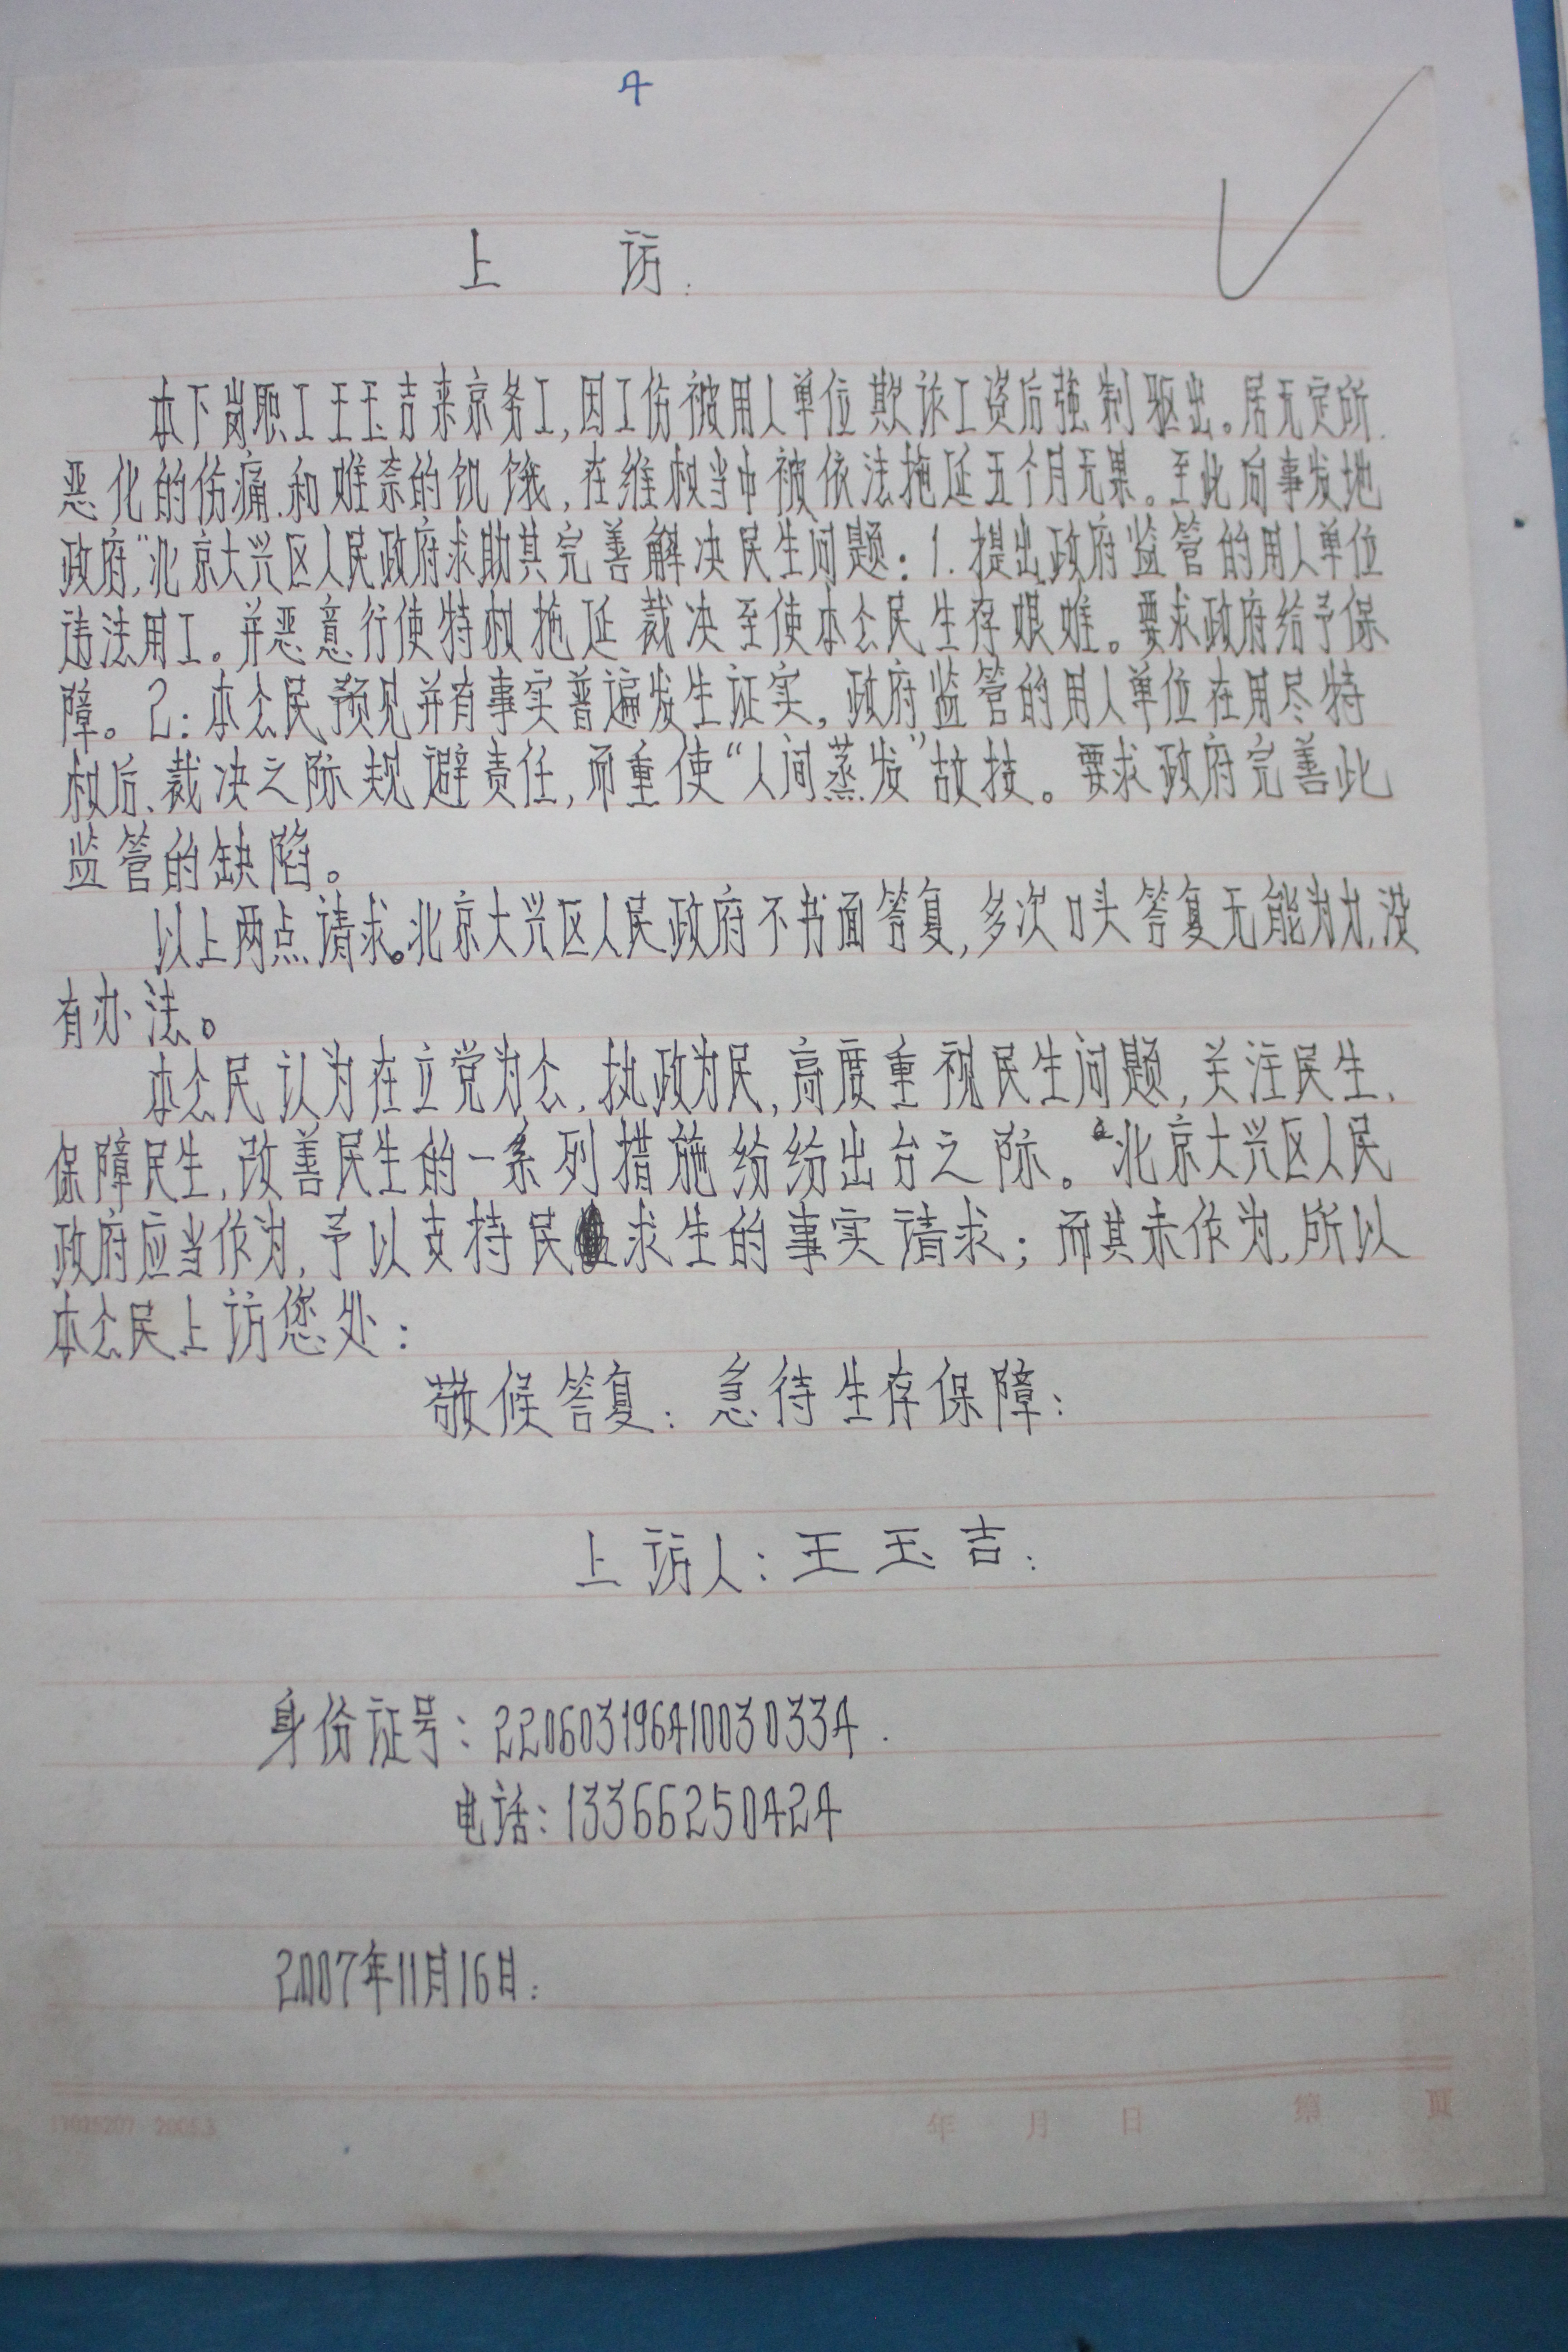 4
上 访:
本下岗职工王玉吉来京务工,因工伤被用人单位欺诈工资后强制驱出。居无定所.
恶化的伤痛.和难奈的饥饿,在维权当中被依法拖延五个月无果。至此向事发地
政府,"北京大兴区人民政府求助其完善解决民生问题:1.提出政府监管的用人单位
违法用工。并恶意行使特权拖延裁决至使本公民生存艰难。要求政府给予保
障。2:本公民预见并有事实普遍发生证实,政府监管的用人单位在用尽特
权后、裁决之际规避责任,而重使“人间蒸发”故技。要求政府完善此
监管的缺陷。
以上两点请求。北京大兴区人民政府不书面答复,多次口头答复无能为力,没
有办法。
本公民认为在立党为公,执政为民,高度重视民生问题,关注民生、
保障民生,改善民生的一系列措施纷纷出台之际。北京大兴区人民
政府应当作为,予以支持民求生的事实请求;而其未作为,所以
本公民上访您处:
敬候答复:急待生存保障:
上访人:王玉吉:
身份证号:220603196410030334.
电话:13366250424
2007年11月16日:
年 月 日 第 页